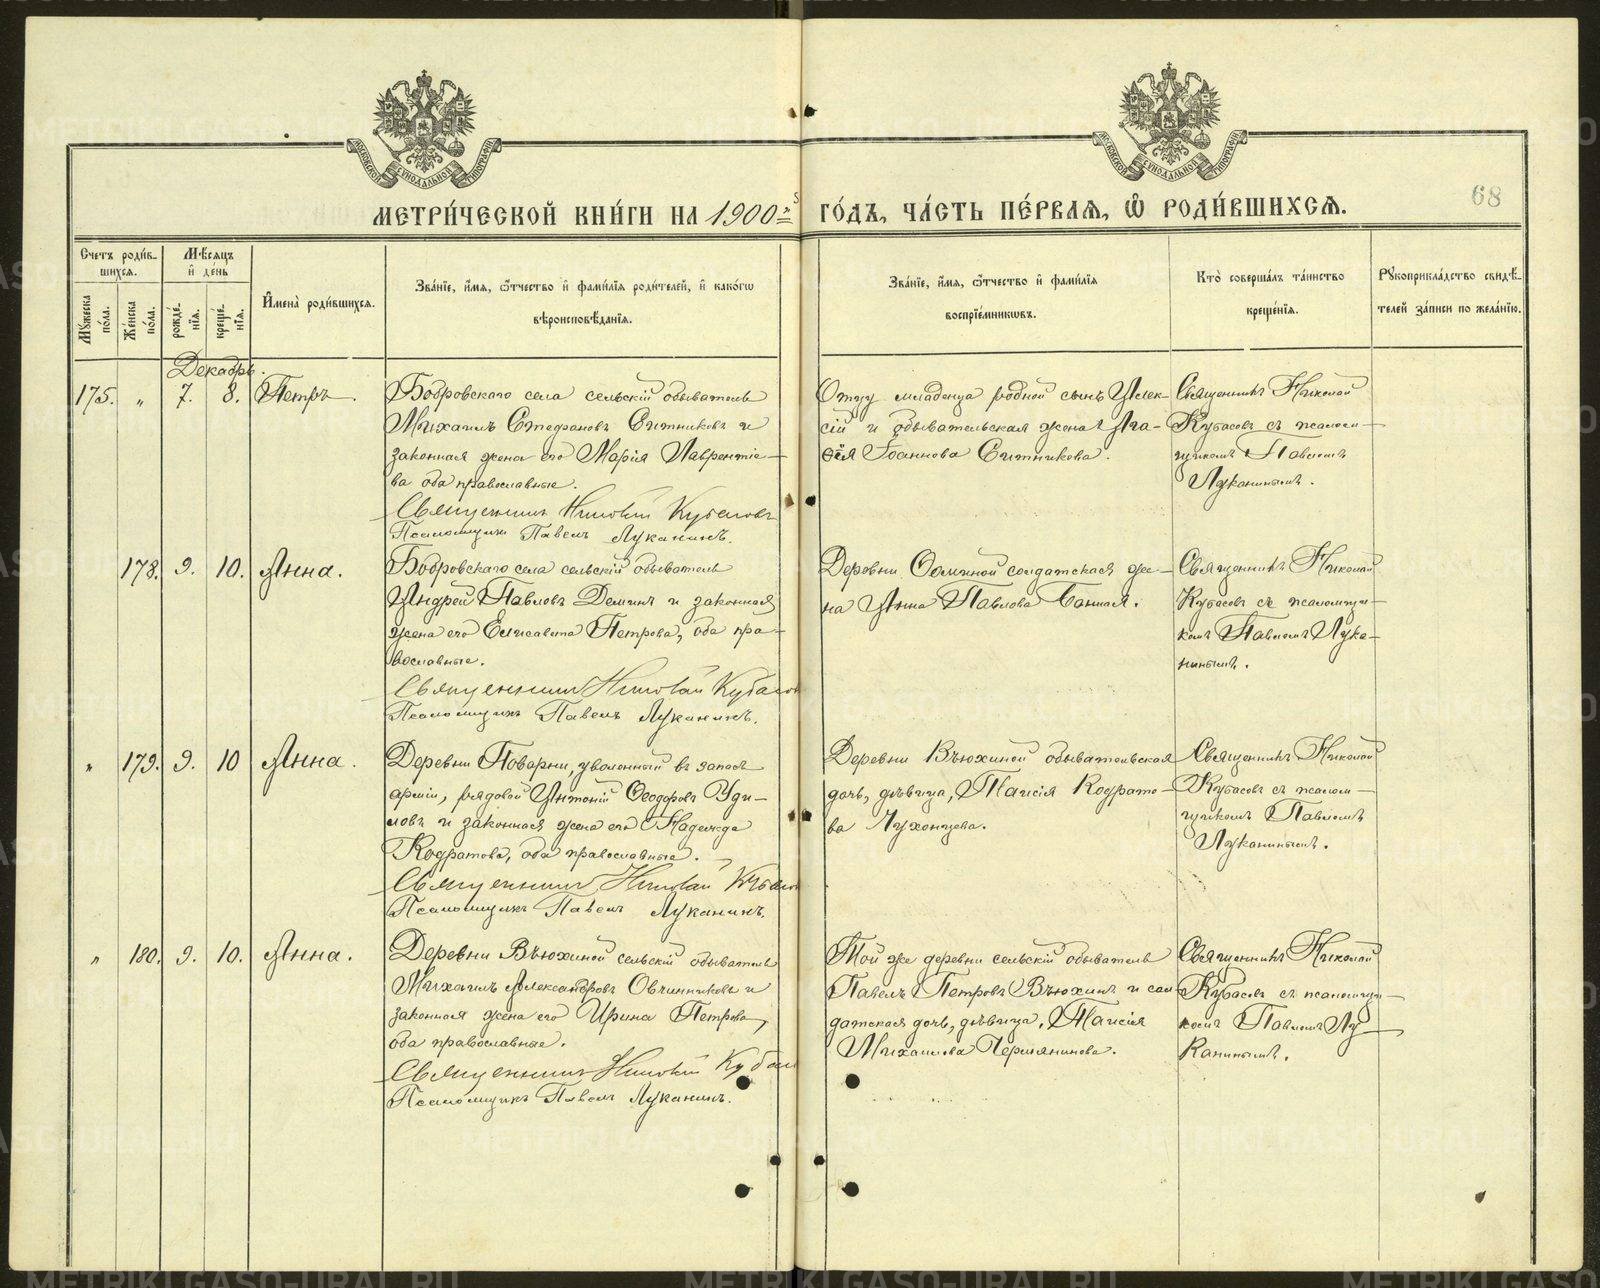 МЕТРИ́ЧЕСКОЙ КНИ́ГИ НА 1900 ГО́ДЪ, ЧА́СТЬ ПЕ́РВАЯ, Ѡ РОДИ́ВШИХСЯ.
68
МОСКОВСКОЙ СѴНОДАЛЬНОЙ ТИПОГРАФІИ
МОСКОВСКОЙ СѴНОДАЛЬНОЙ ТИПОГРАФІИ
Счетъ роди́в-
шихся.
Мѣ́сяцъ
и҆ де́нь
Мꙋжеска по́ла.
Же́нска по́ла.
рожде́-
нїя.
креще́-
нїя.
И҆мена̀ роди́вшихся.
Зва́нїе, и҆́мя, ѻ҆́тчество и҆ фами́лїя роди́телей, и҆ како́гѡ
вѣроисповѣ́данїя.
Зва́нїе, и҆́мя, ѻ҆́тчество и҆ фами́лїя
воспрїе́мникѡвъ.
Кто̀ соверша́лъ та́инство
креще́нїя.
Рꙋкоприкла́дство свидѣ́-
телей за́писи по жела́нїю.
Декабрь.
175. „ 7. 8. Петръ.
Бобровскаго села сельскій обыватель
Михаилъ Стефановъ Ситниковъ и
законная жена его Марія Лаврентіе-
ва оба православные.
Священникъ Николай Кубасовъ
Псаломщикъ Павелъ Луканинъ.
Отцу младенца родной сынъ Алек-
сій и обывательская жена Ага-
ѳія Іоаннова Ситникова.
Священникъ Николай
Кубасовъ съ псалом-
щикомъ Павломъ
Луканинымъ.
178. 9. 10. Анна.
Бобровскаго села сельскій обыватель
Андрей Павловъ Деминъ и законная
жена его Елисавета Петрова, оба пра-
вославные.
Священникъ Николай Кубасов
Псаломщикъ Павелъ Луканинъ.
Деревни солдатская же-
на Анна Павлова
Священникъ Николай
Кубасовъ съ псаломщи-
комъ Павломъ Лука-
нинымъ.
„ 179. 9. 10 Анна.
Деревни Поварни, уволенный въ запасъ
арміи, рядовой Антоній Ѳеодоровъ Уди-
ловъ и законная жена его Надежда
Кодратова, оба православные.
Священникъ Николай Кубасов
Псаломщикъ Павелъ Луканинъ.
Деревни Вьюхиной обывательская
дочь, дѣвица, Таисія Кодрато-
ва Лухонцева.
Священникъ Николай
Кубасовъ съ псалом-
щикомъ Павломъ
Луканинымъ.
„ 180. 9. 10. Анна.
Деревни Вьюхиной сельскій обыватель
Михаилъ Александровъ Овчинниковъ и
законная жена его Ирина Петрова,
оба православные.
Священникъ Николай Кубасо
Псаломщикъ Павелъ Луканинъ.
Той же деревни сельскій обыватель
Павелъ Петровъ Вьюхинъ и сол-
датская дочь, дѣвица, Таисія
Михаилова Пермянинова.
Священникъ Николай
Кубасовъ съ псаломщи-
комъ Павломъ Лу-
канинымъ.
METRIKI.GASO-URAL.RU